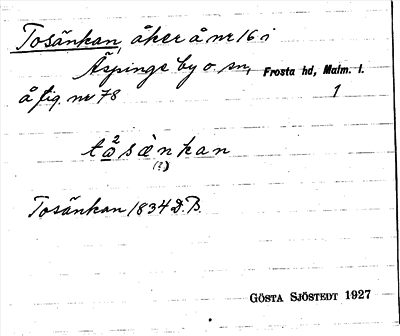 Tosänkan, åker å nr 16 i
Äspinge by o. sn, Frosta hd, Malm. l.
å fig. nr 78 1
tå²sènkan
(?)
Tosänkan 1834 D.B.
GÖSTA SJÖSTEDT 1927